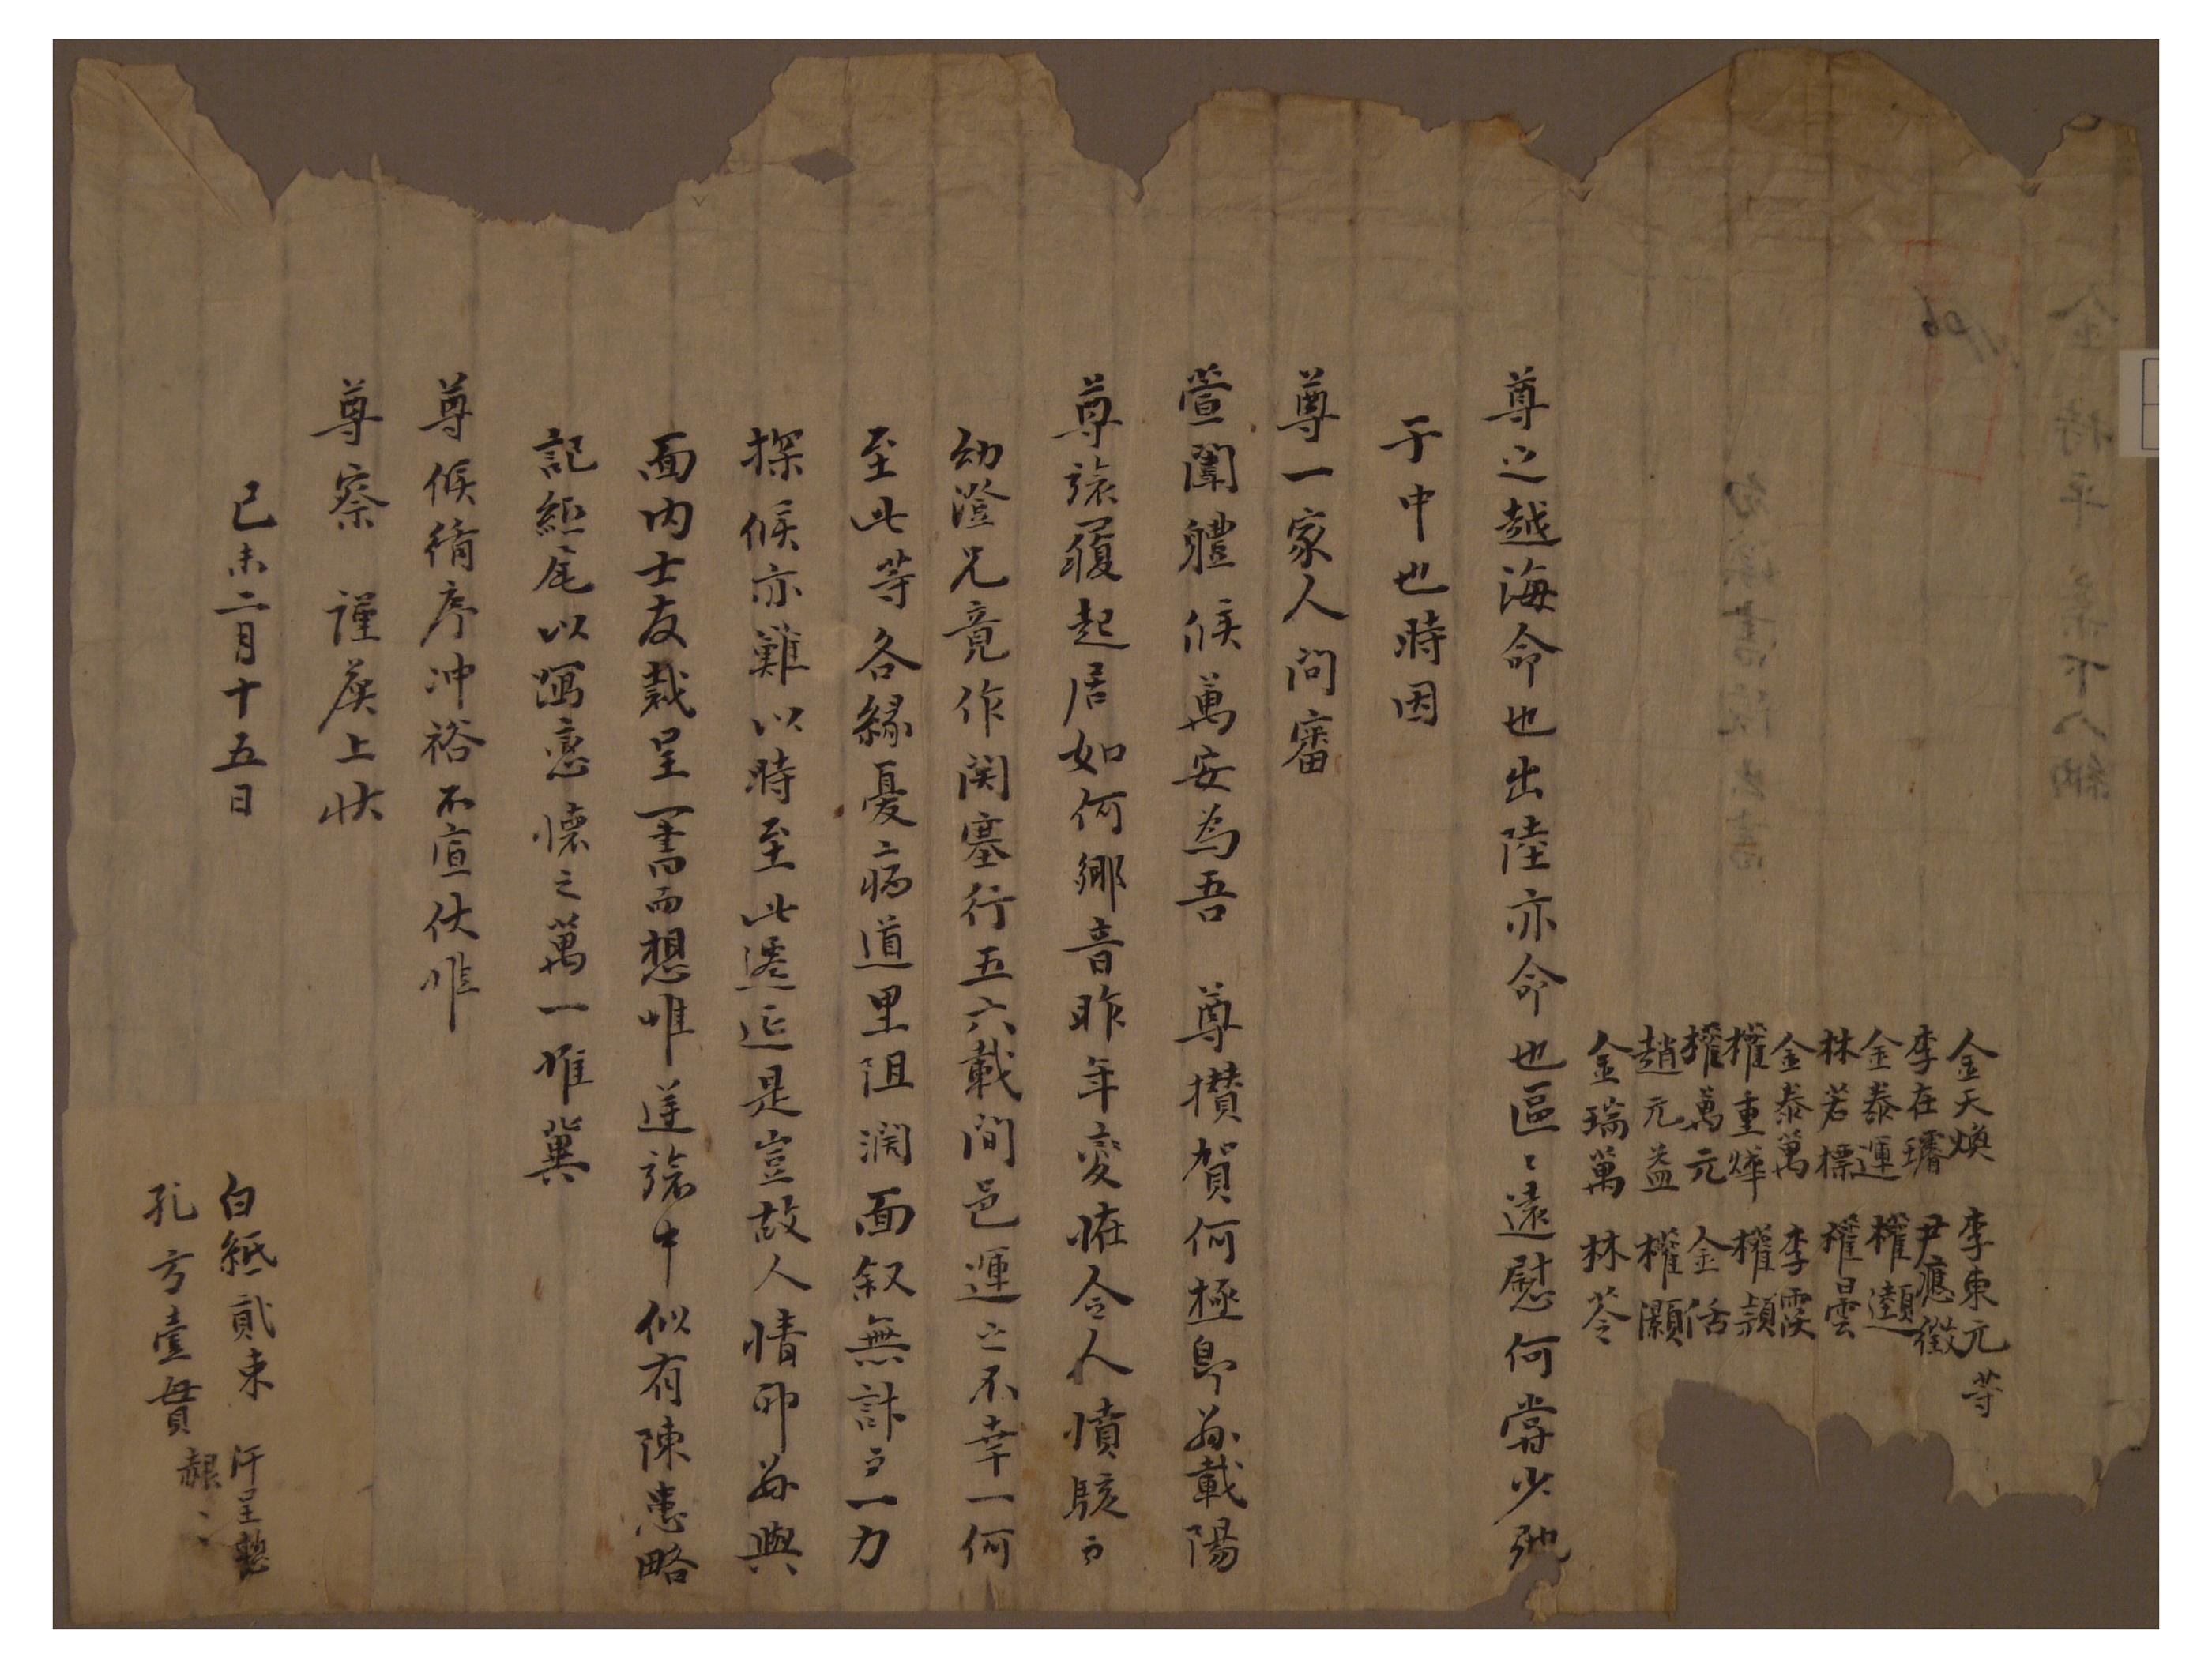 尊之越海命也出陸亦命也區〻遠慰何嘗少弛
于中也時因
尊一家人問審
萱闈體候萬安爲吾 尊攢賀何極卽玆載陽
尊旅履起居如何鄕音昨年變恠令人憤駭而
幼澄兄竟作関塞行五六載間邑運之不幸一何
至此等各緣憂病道里阻濶面叙無計而一力
探候亦難以時至此遷延是豈故人情卽玆與
面内士友裁呈一書而想惟逆旅中似有陳患略
記紙尾以寫戀懷之萬一唯冀
尊候循序冲裕不宣伏惟
尊察 謹候上狀
己未二月十五日
金天煥 李東元 等
李在璿 尹應徵
金泰運 權
林若標 權曇
金泰萬 李霙
權重燁 權潁
權萬元 金活
趙元益 權灝
金瑞萬 林苓
白紙貳束 汗呈
孔方壹貫 赧〻
金持平 下人納
書院
106